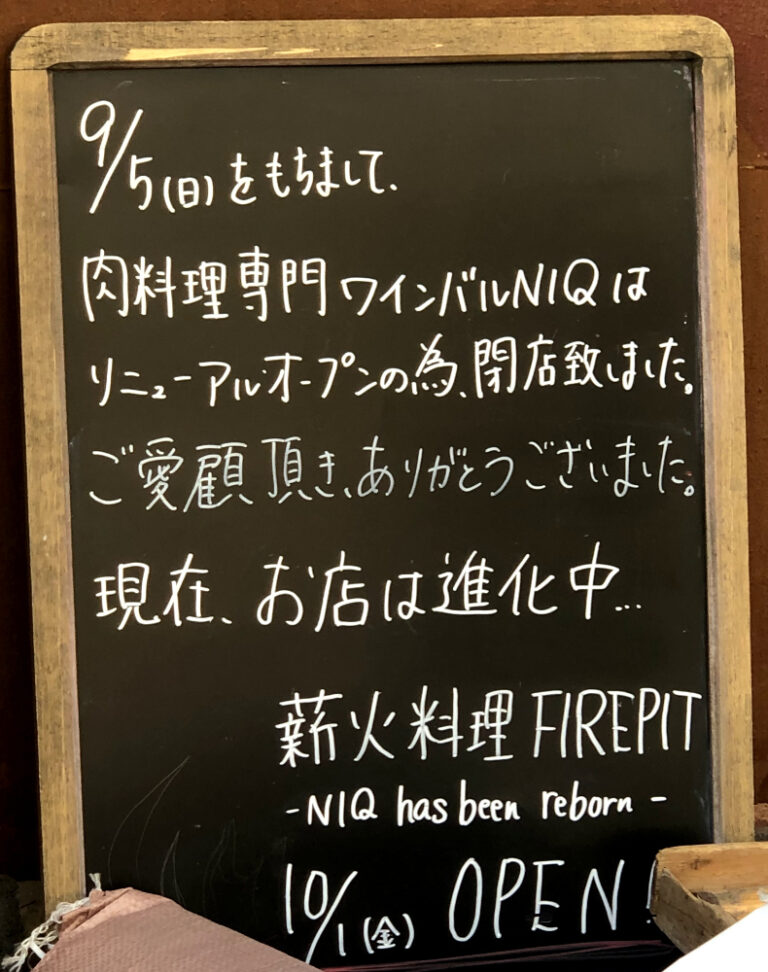 9/5(日)をもちまして、
肉料理専門ワインバルNIQは
リニューアルオープンの為、閉店致しました。
ご愛顧頂き、ありがとうございました。
現在、お店は進化中...
薪火料理 FIREPIT
-NIQ has been reborn-
10/1(金) OPEN!